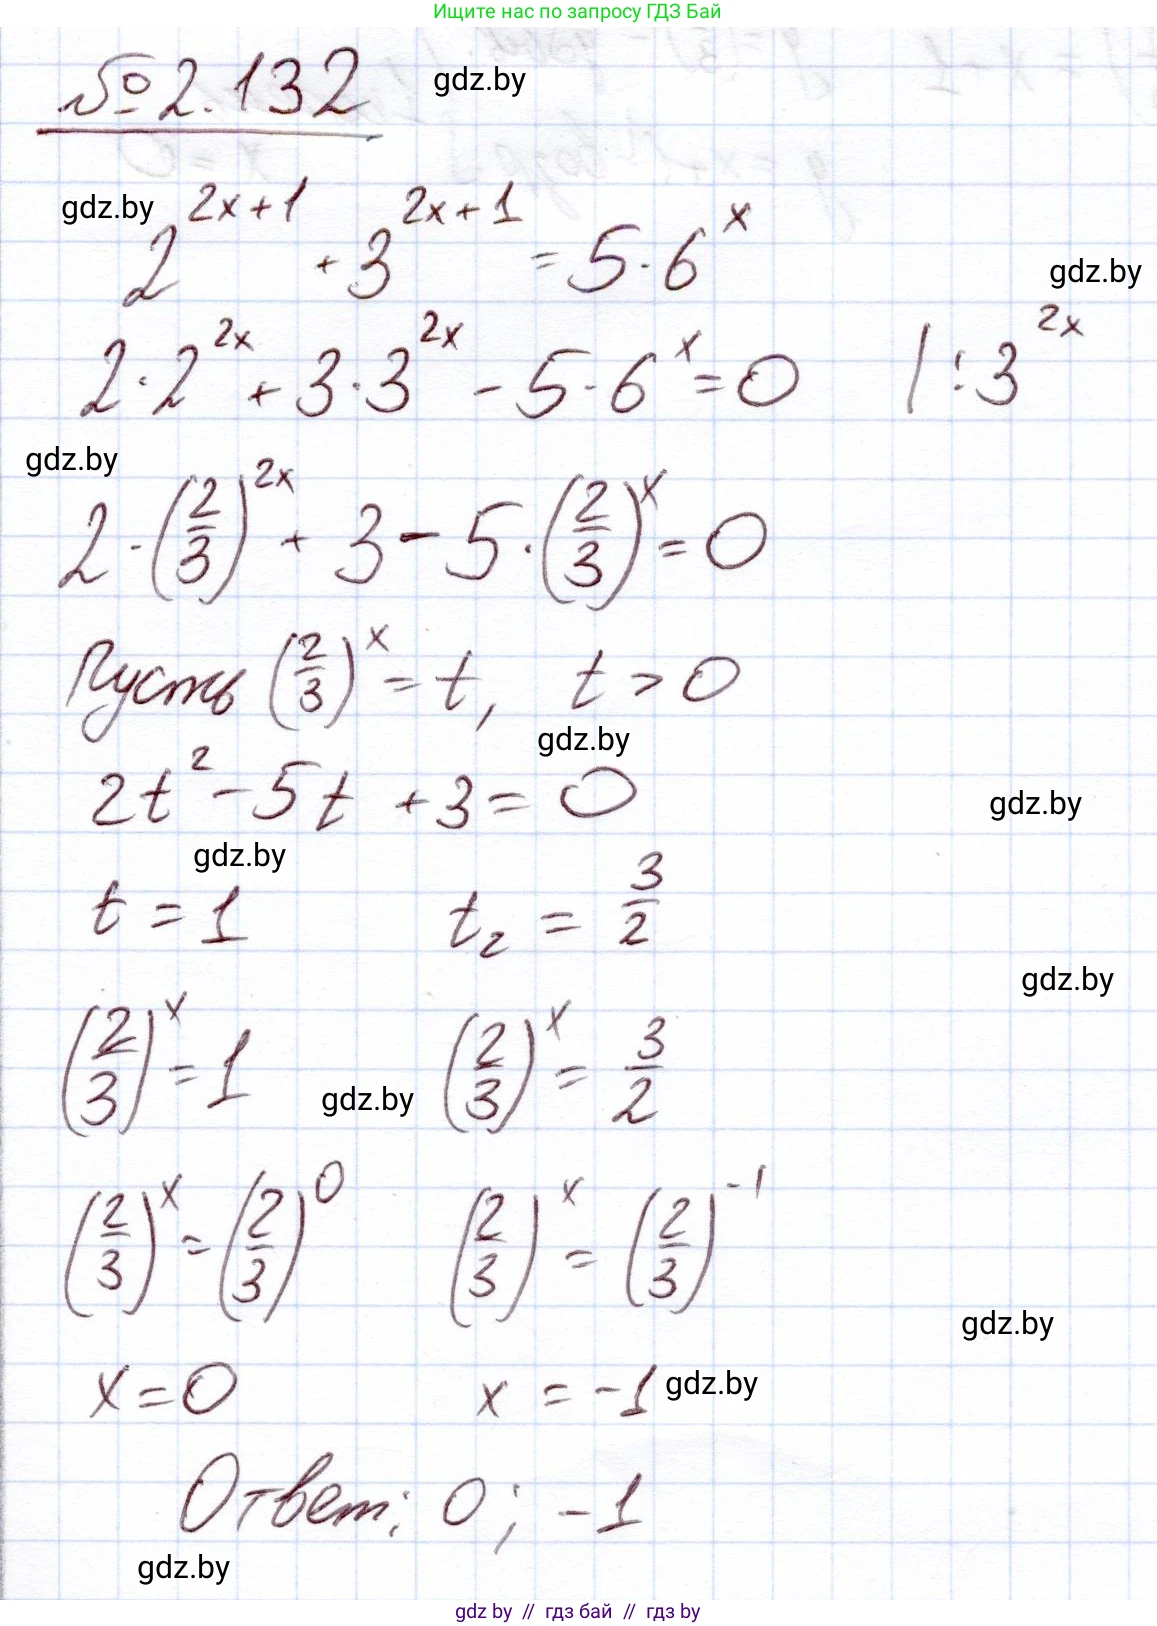 Ищите нас по запросу ГДЗ Бай
№ 2.132 gdz.by
gdz.by 2^{2x+1} + 3^{2x+1} = 5·6^x
gdz.by
2·2^{2x} + 3·3^{2x} - 5·6^x = 0 | : 3^{2x}
gdz.by
2·(2/3)^{2x} + 3 - 5·(2/3)^x = 0
Пусть (2/3)^x = t, t > 0
gdz.by
2t² - 5t + 3 = 0 gdz.by
gdz.by
t = 1 t₂ = 3/2
gdz.by
(2/3)^x = 1 gdz.by (2/3)^x = 3/2
(2/3)^x = (2/3)^0 (2/3)^x = (2/3)^{-1}
gdz.by
x = 0 x = -1 gdz.by
Ответ: 0; -1
gdz.by
gdz by // гдз бай // гдз by